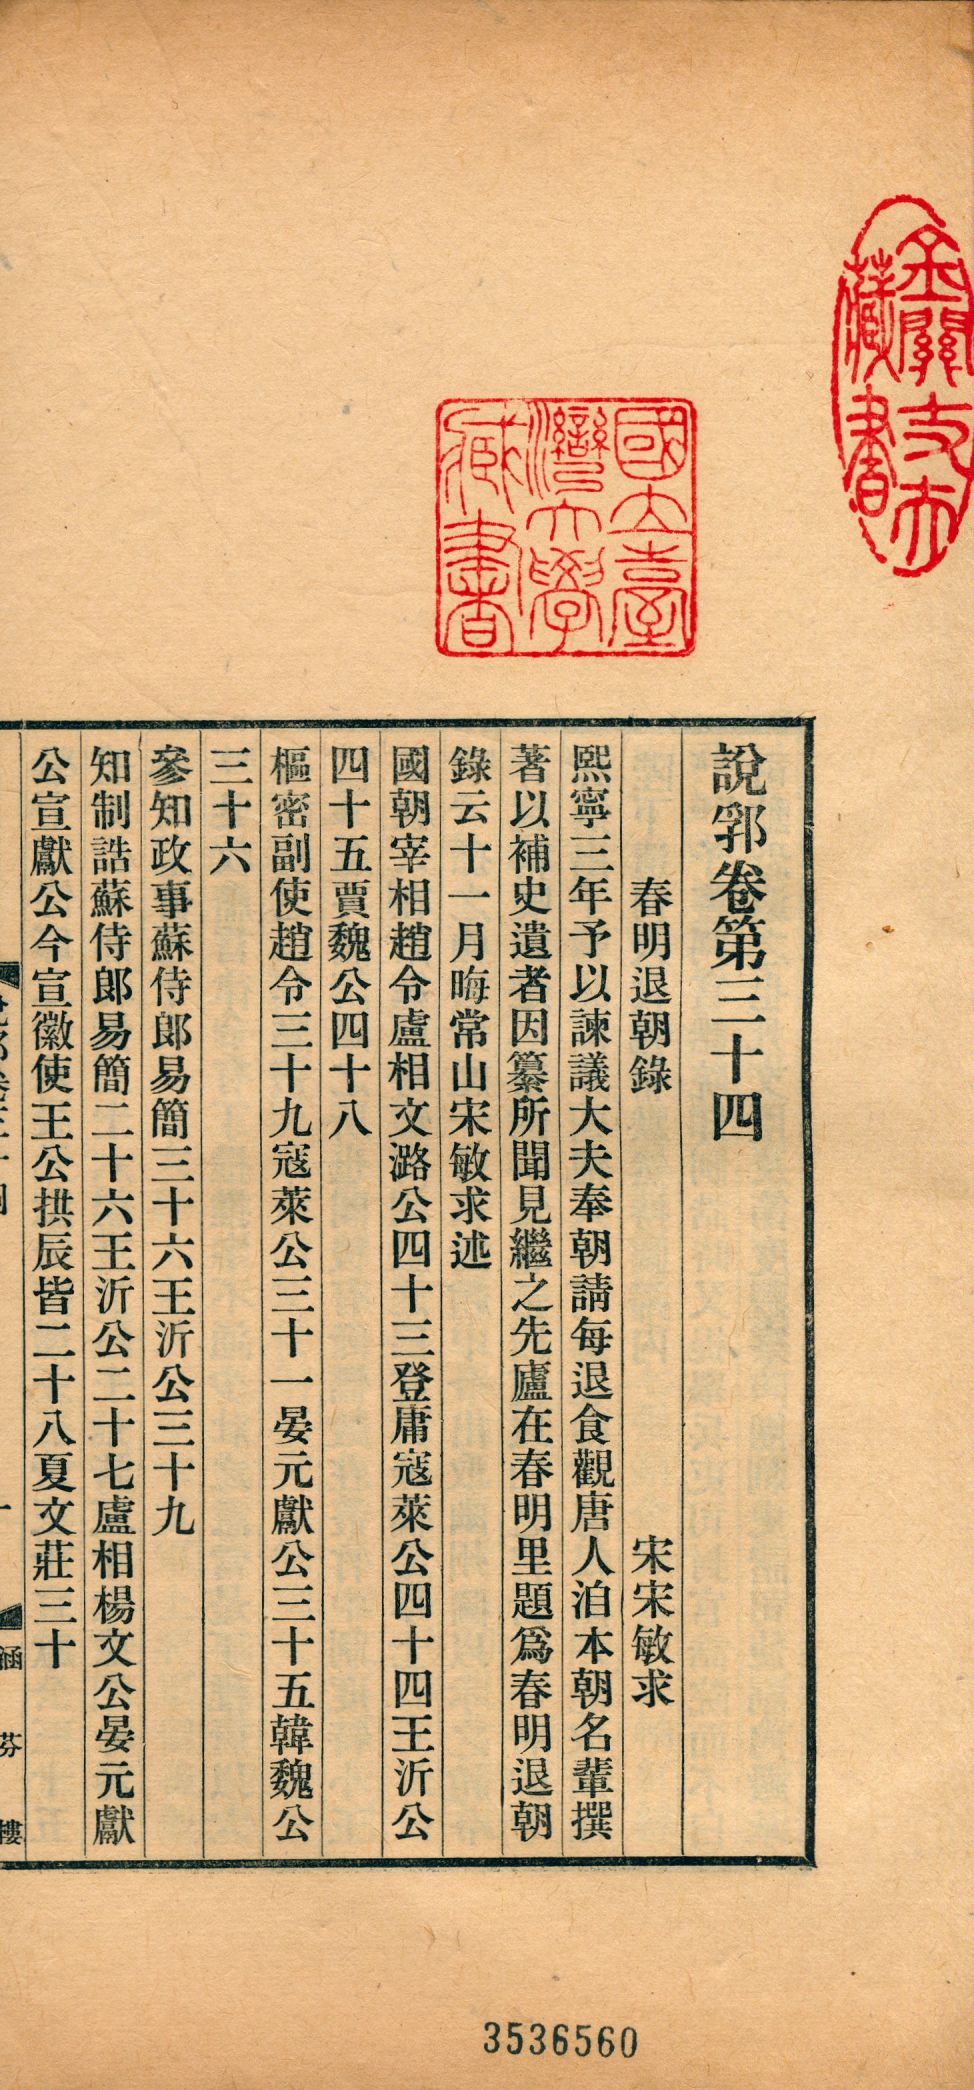 說郛卷第三十四
春明退朝錄 宋宋敏求
熙寧三年予以諫議大夫奉朝請每退食觀唐人洎本朝名輩撰
著以補史遺者因纂所聞見繼之先廬在春明里題爲春明退朝
錄云十一月晦常山宋敏求述
國朝宰相趙令盧相文潞公四十三登庸寇萊公四十四王沂公
四十五賈魏公四十八
樞密副使趙令三十九寇萊公三十一晏元獻公三十五韓魏公
三十六
參知政事蘇侍郎易簡三十六王沂公三十九
知制誥蘇侍郎易簡二十六王沂公二十七盧相楊文公晏元獻
公宣獻公今宣徽使王公拱辰皆二十八夏文莊三十
涵芬樓
國立臺
灣大學
藏書
藏書
3536560